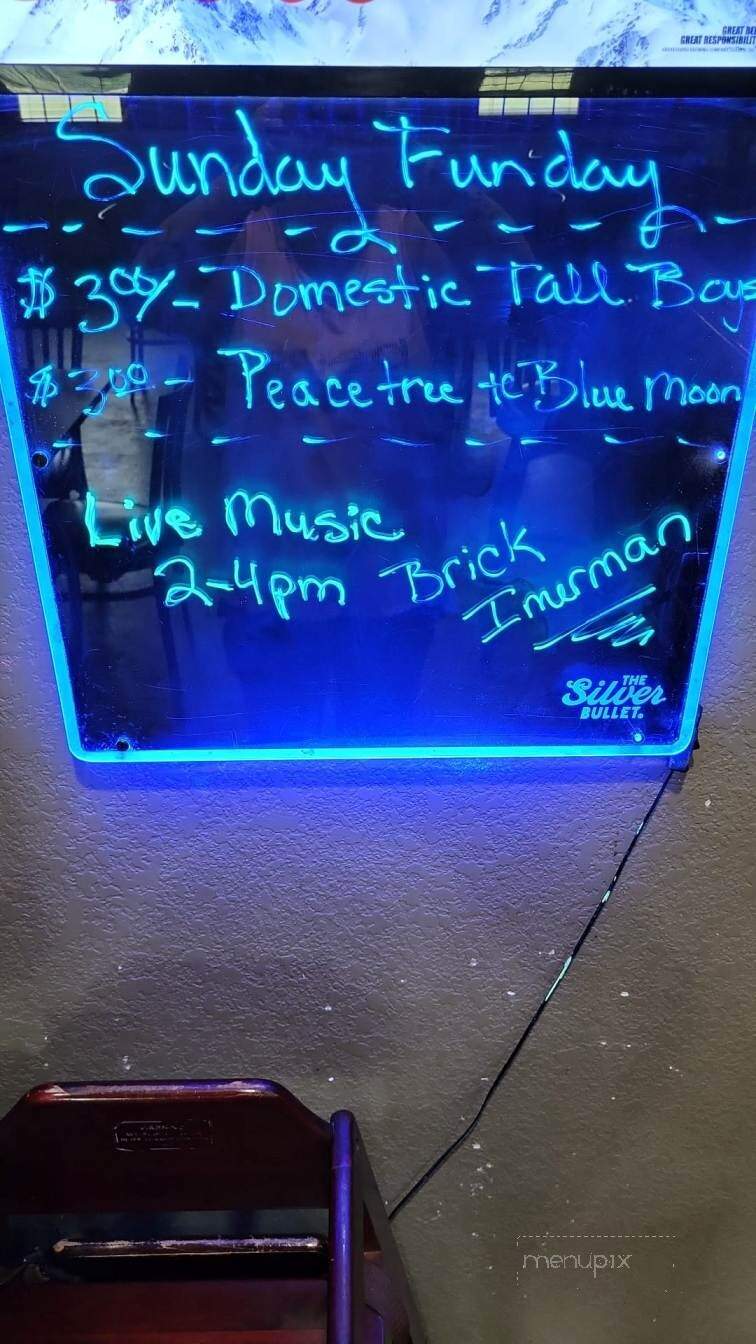 GREAT RESPONSIBILIT
Sunday Funday
$3.00/- Domestic Tall Boys
$3.00 - Peacetree Blue Moon
Live Music
2-4pm Brick
Imerman
THE
Silver
BULLET.
menupix